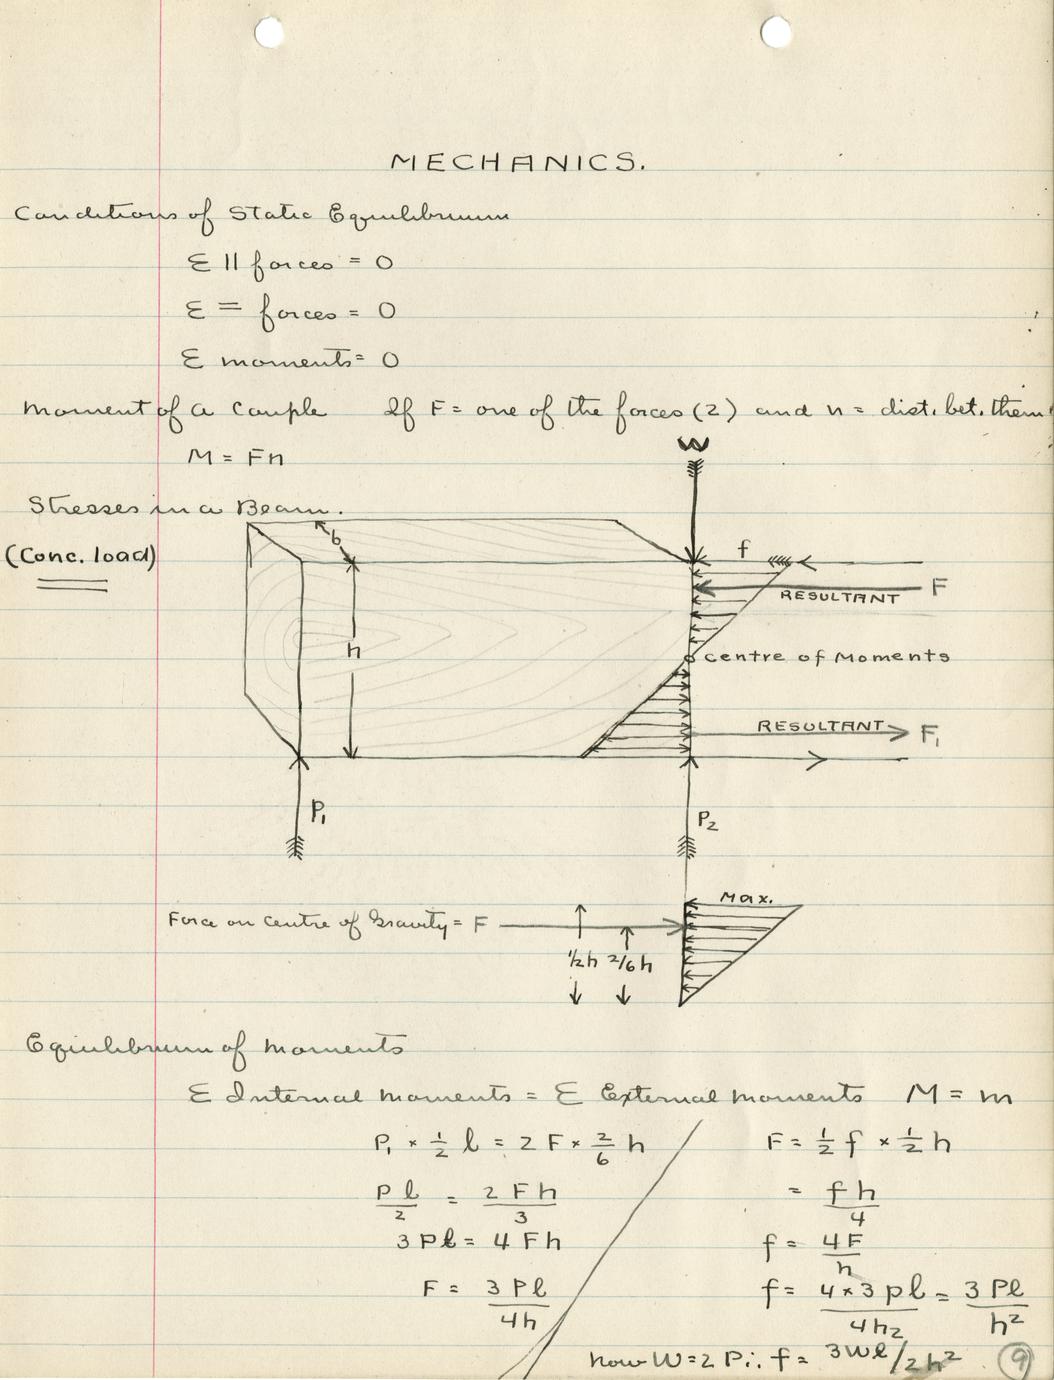 MECHANICS.
Conditions of Static Equilibrium
Σ || forces = 0
Σ = forces = 0
Σ moments = 0
Moment of a Couple If F = one of the forces (2) and n = dist. bet. them
M = Fn
W
Stresses in a Beam.
b
(Conc. load)
f
F
RESULTANT
h
Centre of Moments
RESULTANT
F₁
P₁
P₂
Max.
Force on Centre of Gravity = F
1/2 h 2/6 h
Equilibrium of Moments
Σ Internal Moments = Σ External Moments M = m
P₁ × 1/2 l = 2 F × 2/6 h F = 1/2 f × 1/2 h
P l / 2 = 2 F h / 3 = f h / 4
3 P l = 4 F h f = 4 F / h
F = 3 P l / 4h f = 4 × 3 p l / 4h2 = 3 P l / h²
now W = 2 P ∴ f = 3 W l / 2 h²
9